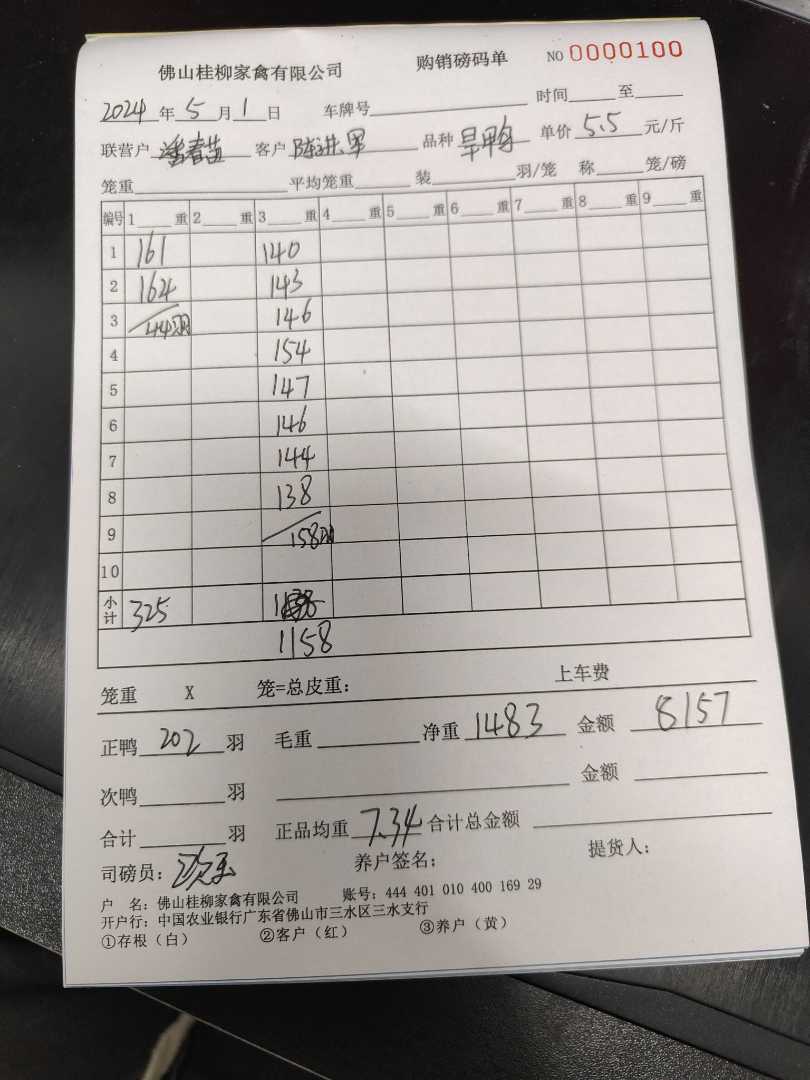 佛山桂柳家禽有限公司 购销磅码单 NO 0000100
2024年5月1日 车牌号 时间 至
联营户 潘春苗 客户 陈洪 品种 旱鸭 单价 5.5 元/斤
笼重 平均笼重 装 羽/笼 称 笼/磅
编号 1 重 2 重 3 重 4 重 5 重 6 重 7 重 8 重 9 重
1 161 140
2 164 143
3 44羽 146
4 154
5 147
6 146
7 144
8 138
9 158羽
10
小计 325
1158
笼重 X 笼=总皮重： 上车费
正鸭 202 羽 毛重 净重 1483 金额 8157
次鸭 羽 金额
合计 羽 正品均重 7.34 合计总金额
司磅员： 养户签名： 提货人：
户 名：佛山桂柳家禽有限公司 账号：444 401 010 400 169 29
开户行：中国农业银行广东省佛山市三水区三水支行
①存根（白） ②客户（红） ③养户（黄）